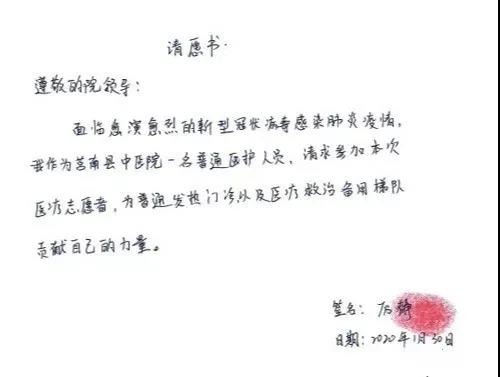 请愿书.
尊敬的院领导：
面临愈演愈烈的新型冠状病毒感染肺炎疫情，
我作为莒南县中医院一名普通医护人员，请求参加本次
医疗志愿者，为普通发热门诊以及医疗救治备用梯队
贡献自己的力量。
签名：
日期：2020年1月30日